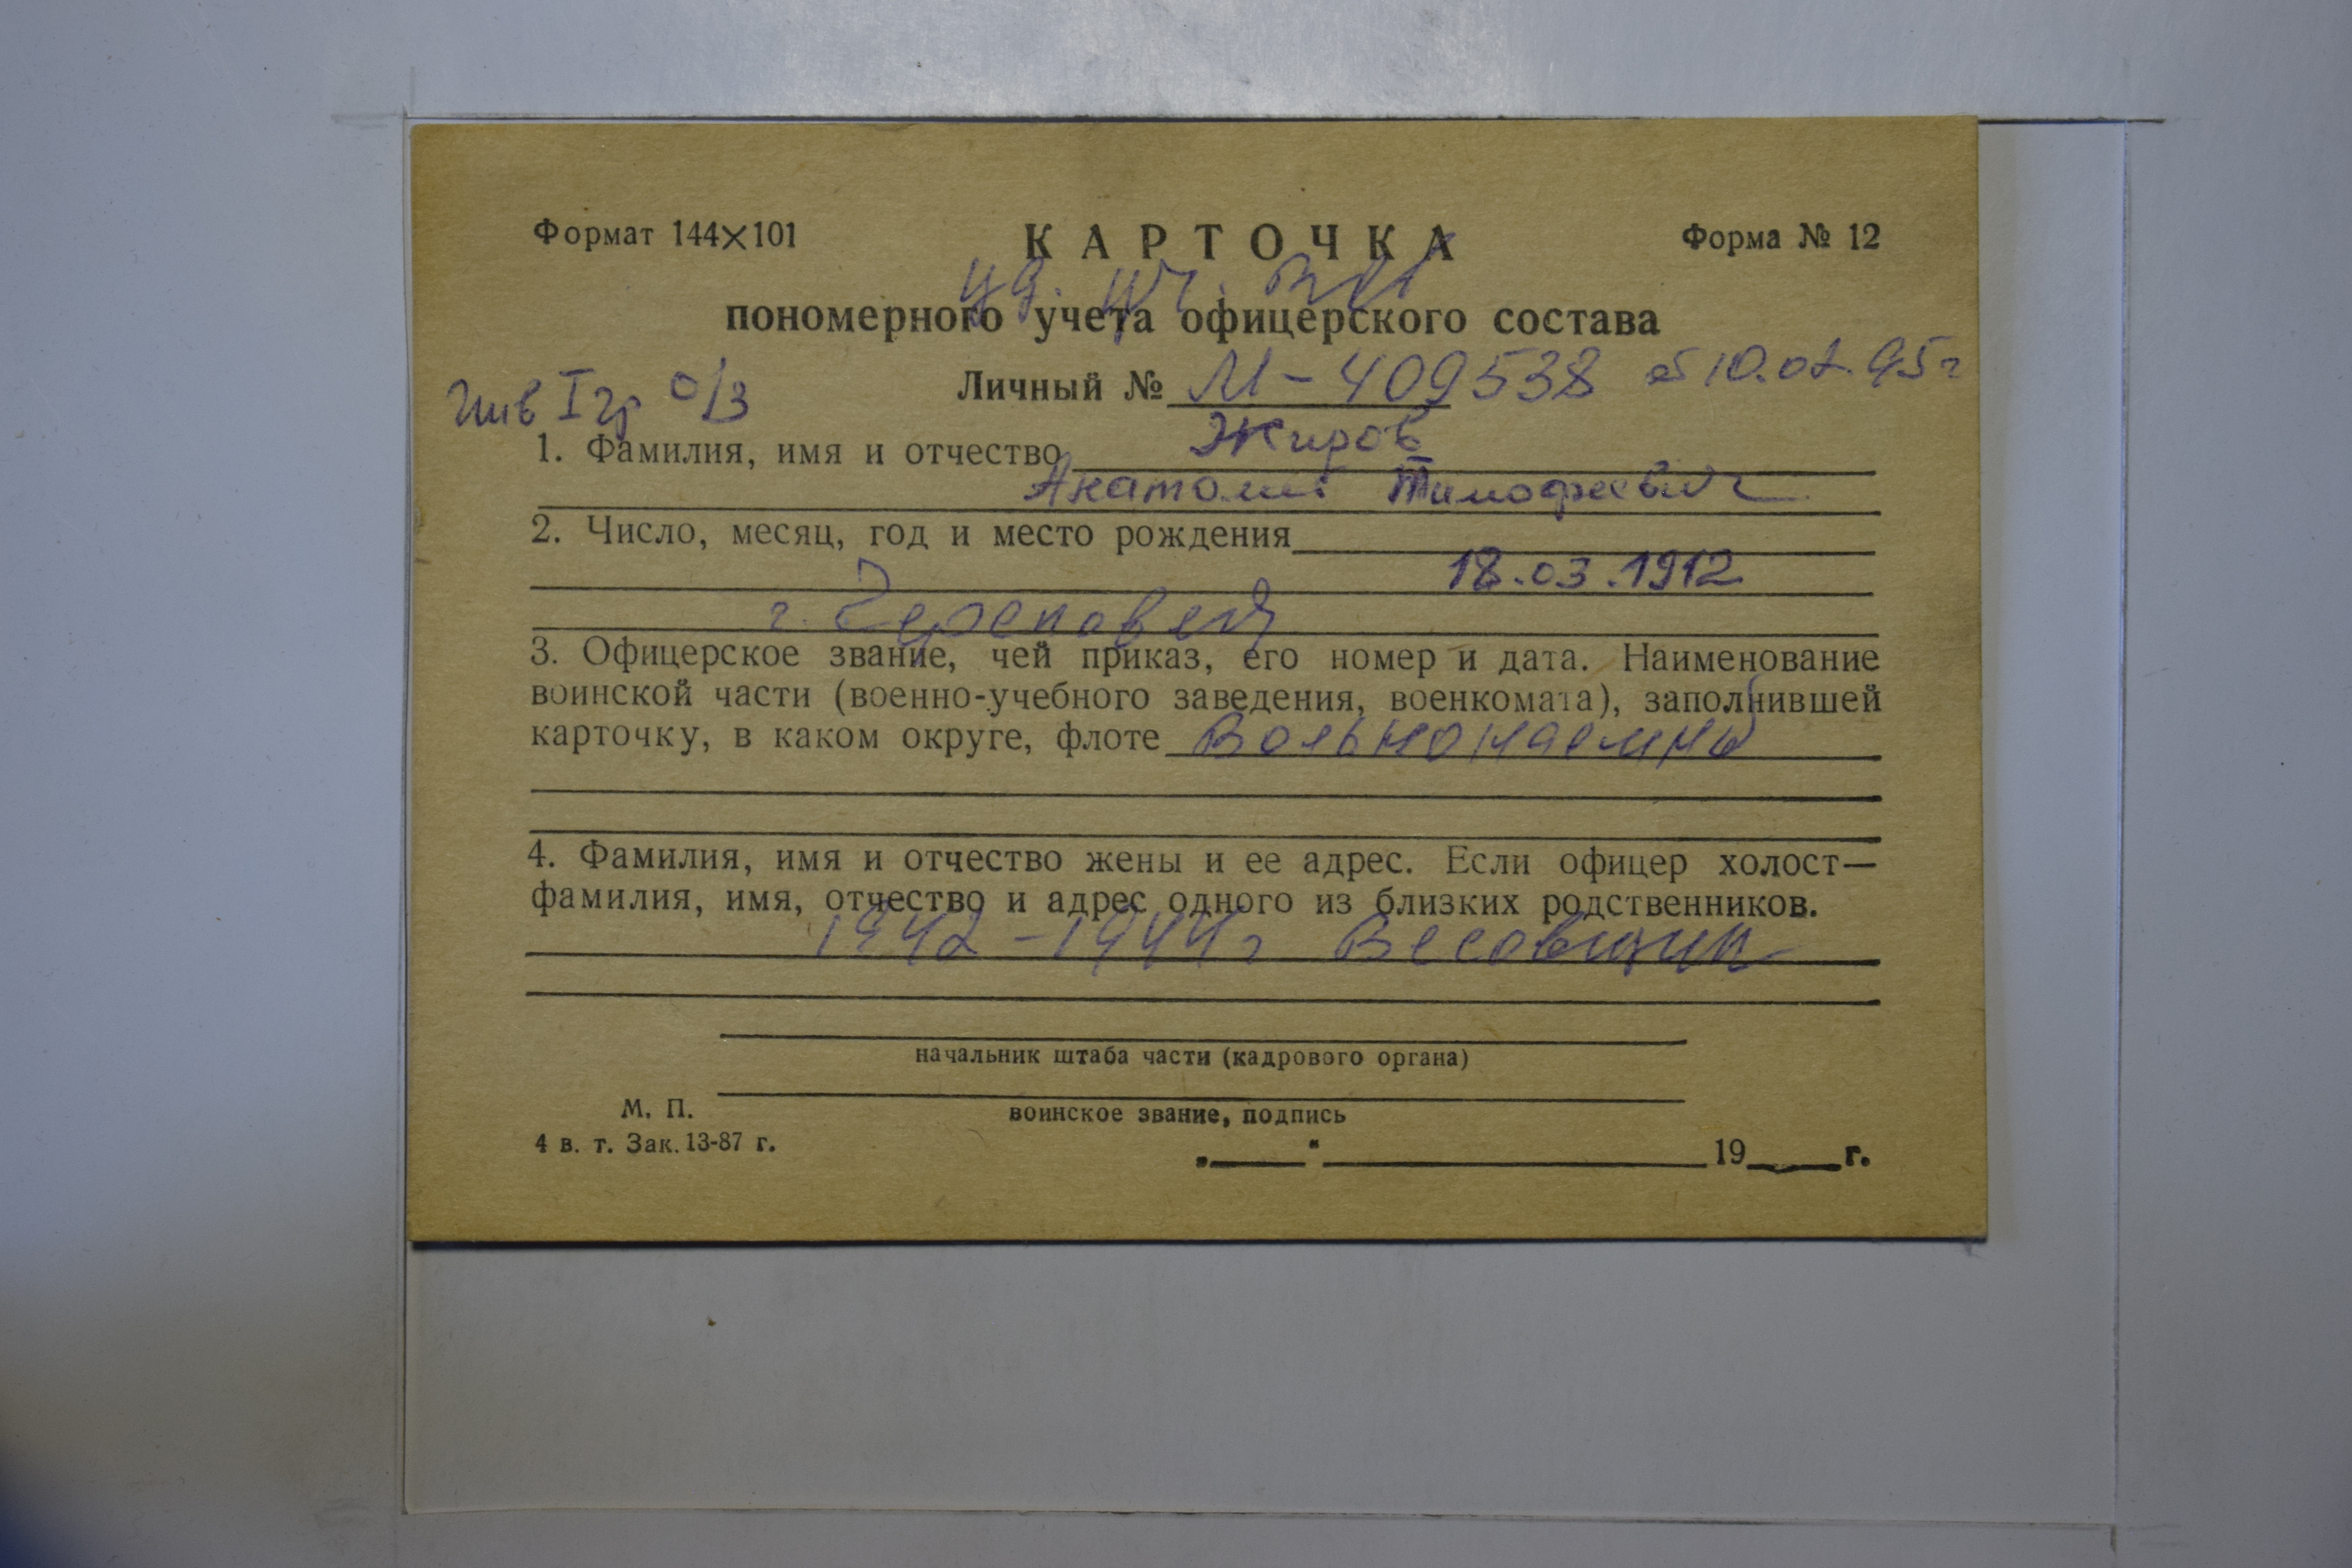 Формат 144×101 КАРТОЧКА Форма № 12
уд. уч. ВОВ
пономерного учета офицерского состава
Личный № М-409538 от 10.07.95г
Инв I гр о/з
1. Фамилия, имя и отчество Жиров
Анатолий Тимофеевич
2. Число, месяц, год и место рождения
18.03.1912
г. Череповец
3. Офицерское звание, чей приказ, его номер и дата. Наименование
воинской части (военно-учебного заведения, военкомата), заполнившей
карточку, в каком округе, флоте Вольнонаемный
4. Фамилия, имя и отчество жены и ее адрес. Если офицер холост—
фамилия, имя, отчество и адрес одного из близких родственников.
1942-1944г Весовщик
начальник штаба части (кадрового органа)
М. П.
воинское звание, подпись
4 в. т. Зак. 13-87 г.
19 г.